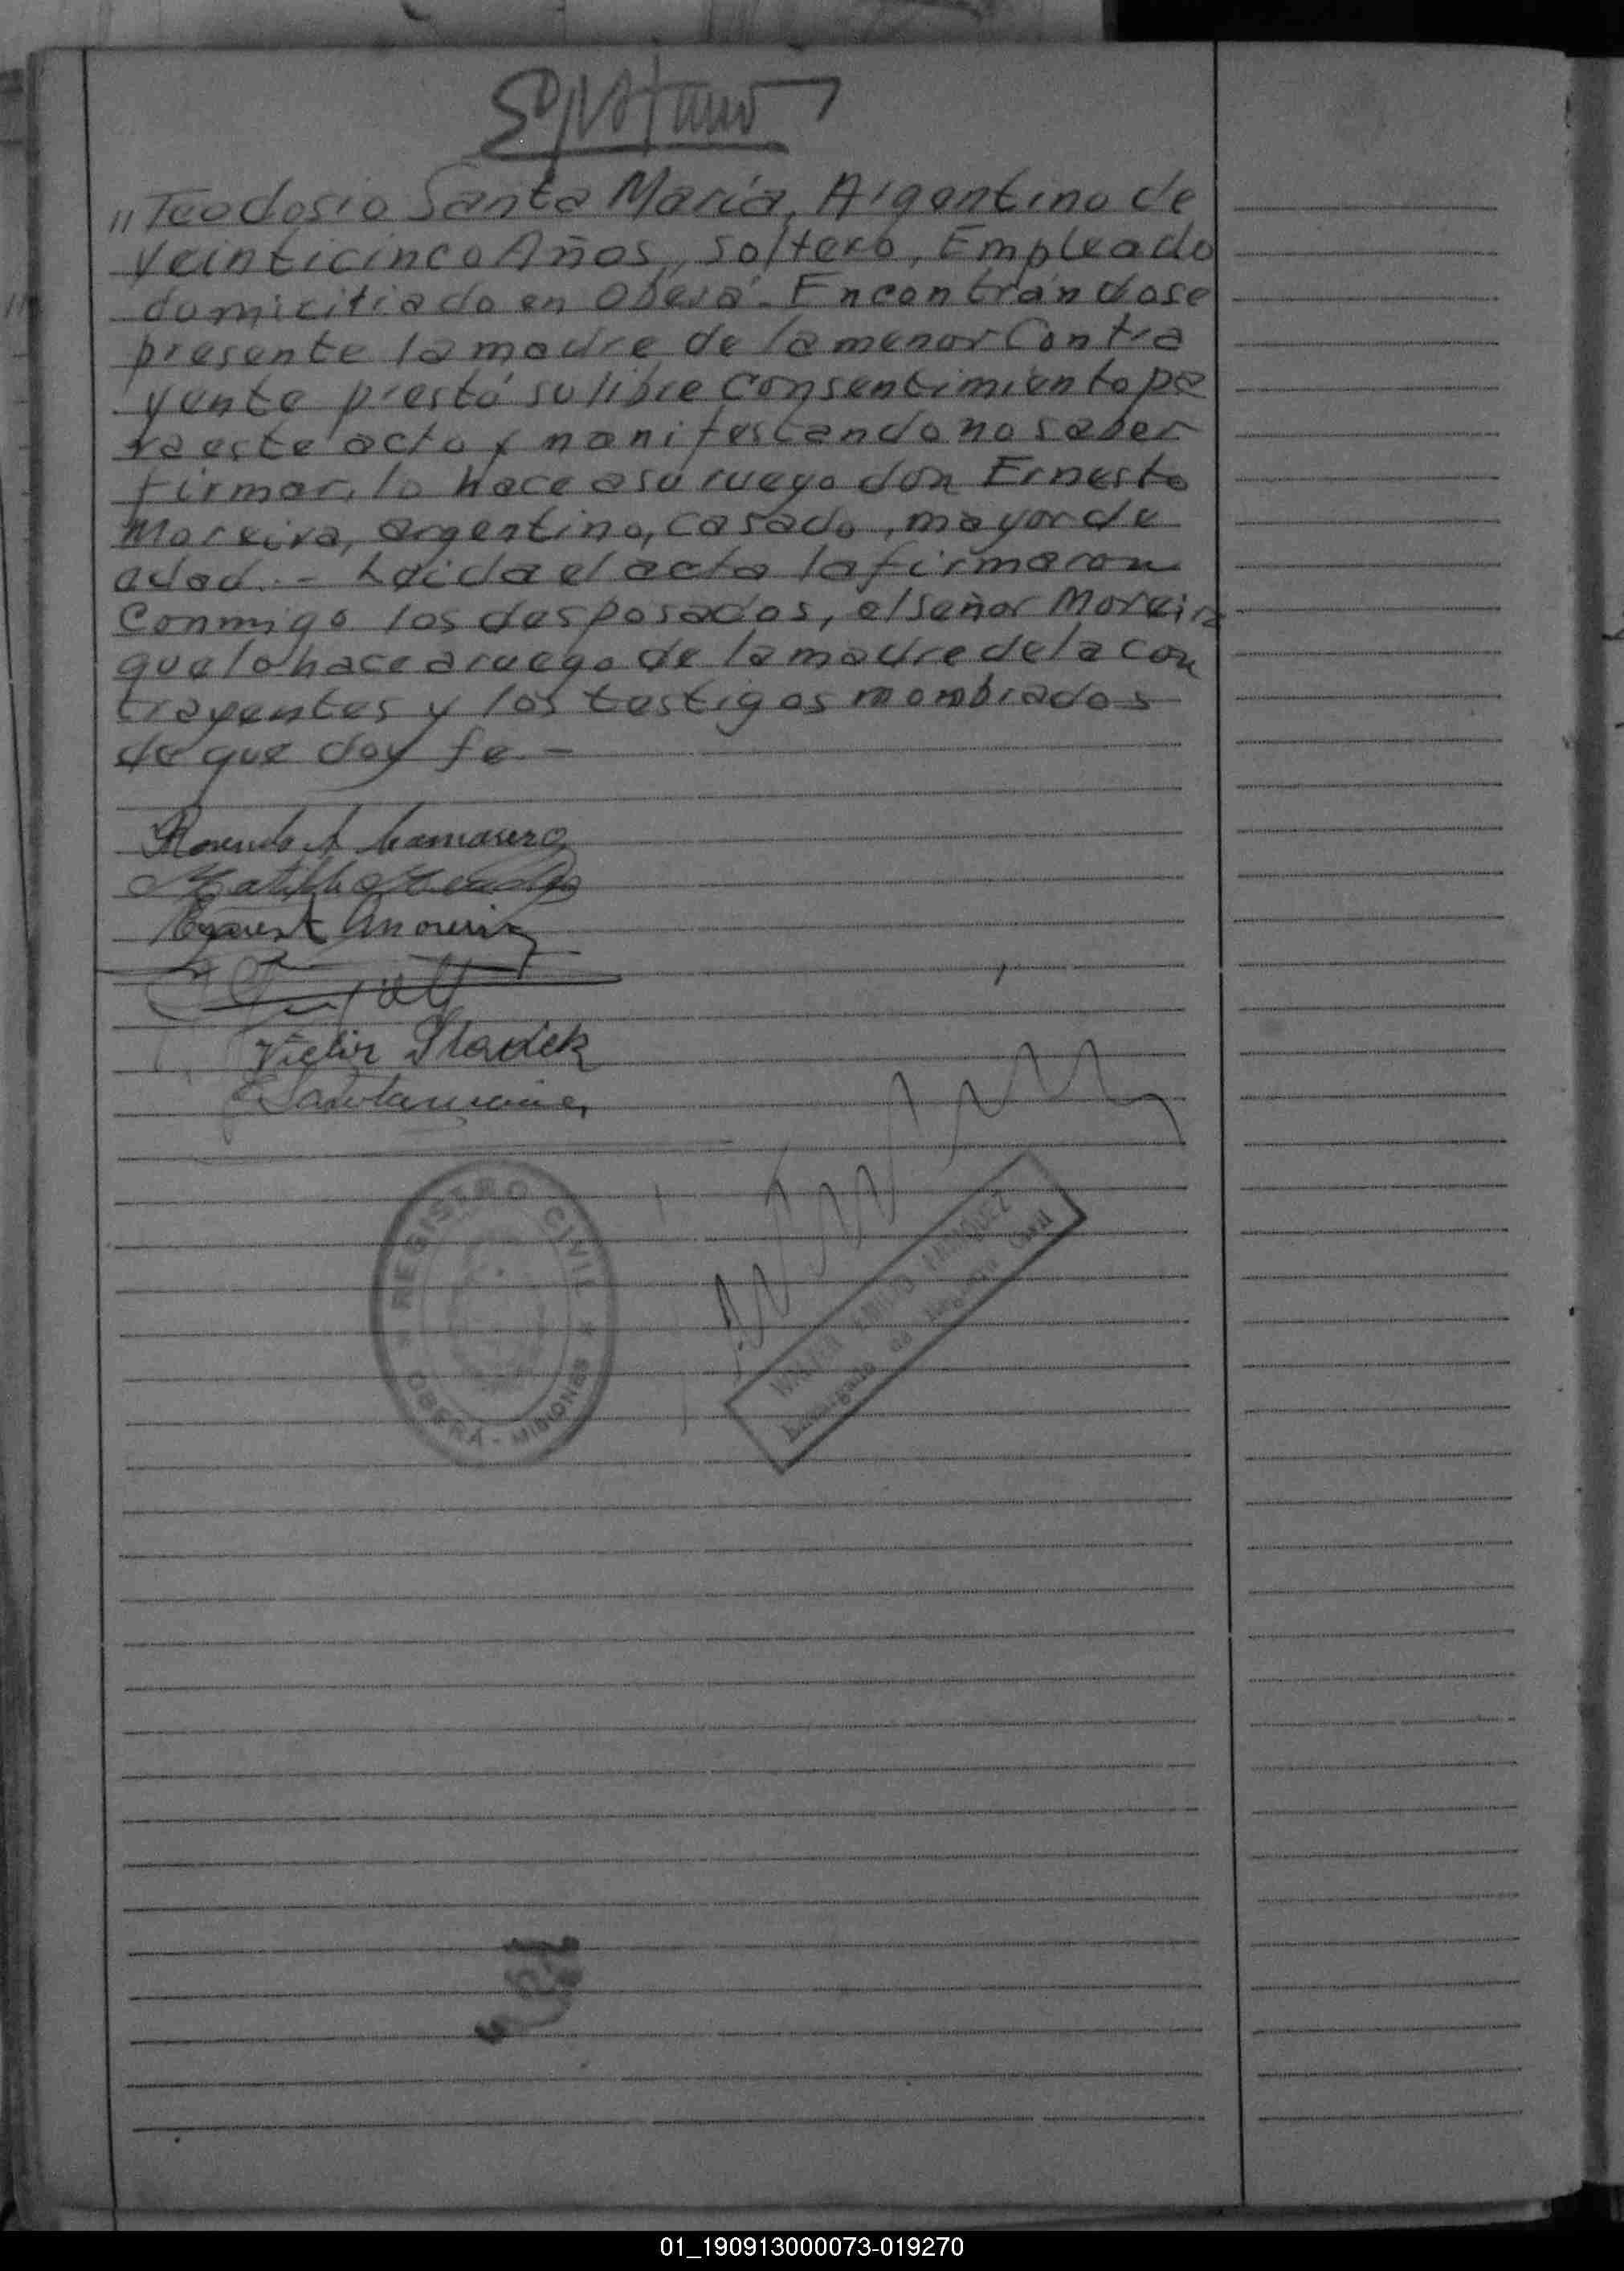 "Teodosio Santa María, Argentino de
veinticinco Años, soltero, Empleado
domicitiado en Oberá.- Encontrándose
presente la madre de la menor Contra
yente prestó su libre consentimiento pa
ra este acto y manifestando no saber
firmar, lo hace a su ruego don Ernesto
Moreira, argentino, casado, mayor de
edad.- Leida el acta la firmaron
conmigo los desposados, el señor Moreira
que lo hace a ruego de la madre de la con
trayentes y los testigos mombrados
de que doy fe.-
Victor Sladek
REGISTRO CIVIL
OBERÁ - MISIONES
Encargado de Registro Civil
01_190913000073-019270